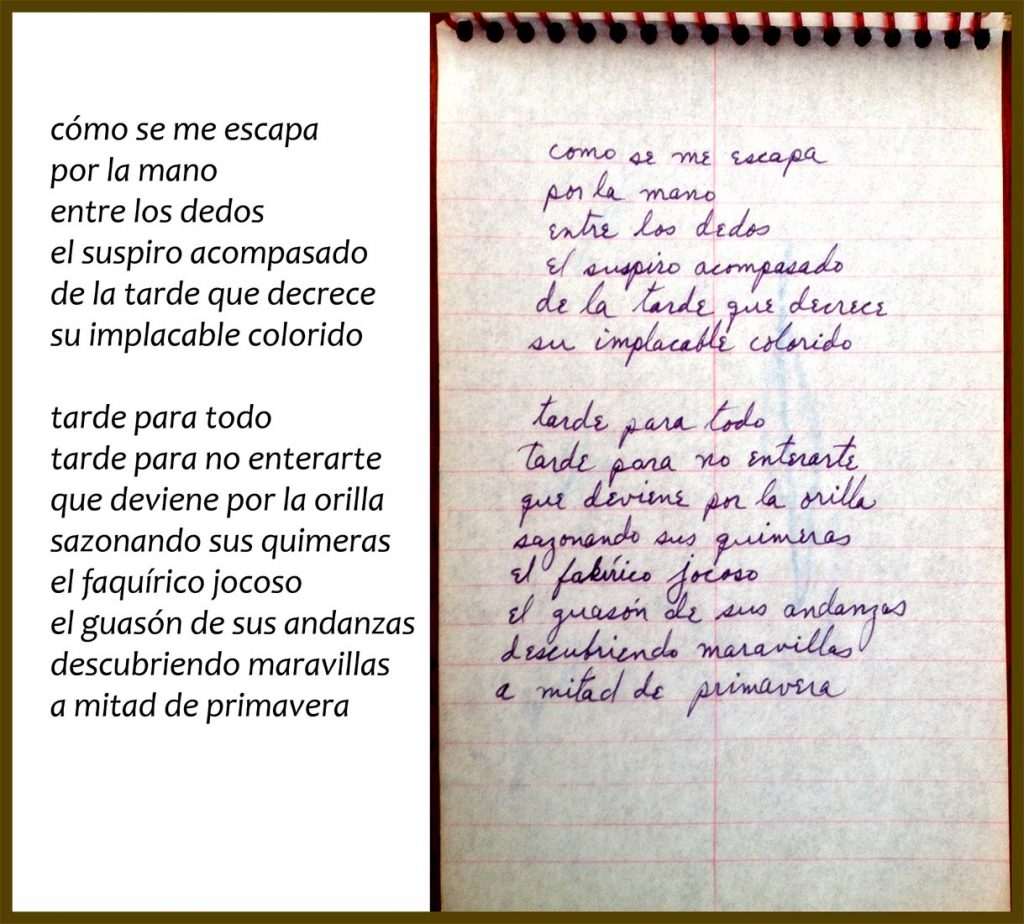 cómo se me escapa
por la mano
entre los dedos
el suspiro acompasado
de la tarde que decrece
su implacable colorido
tarde para todo
tarde para no enterarte
que deviene por la orilla
sazonando sus quimeras
el faquírico jocoso
el guasón de sus andanzas
descubriendo maravillas
a mitad de primavera
como se me escapa
por la mano
entre los dedos
el suspiro acompasado
de la tarde que decrece
su implacable colorido
tarde para todo
tarde para no enterarte
que deviene por la orilla
sazonando sus quimeras
el fakírico jocoso
el guasón de sus andanzas
descubriendo maravillas
a mitad de primavera